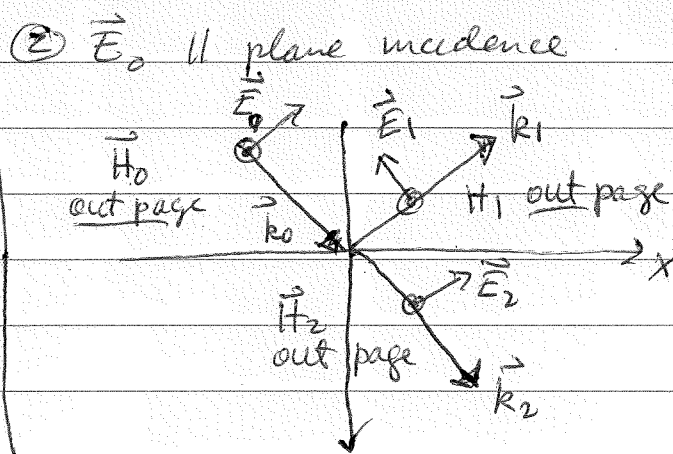 ② E⃗₀ ∥ plane incidence
E⃗₀
E⃗₁
k⃗₁
H⃗₀
out page
H₁ out page
k⃗₀
x
E⃗₂
H⃗₂
out page
k⃗₂